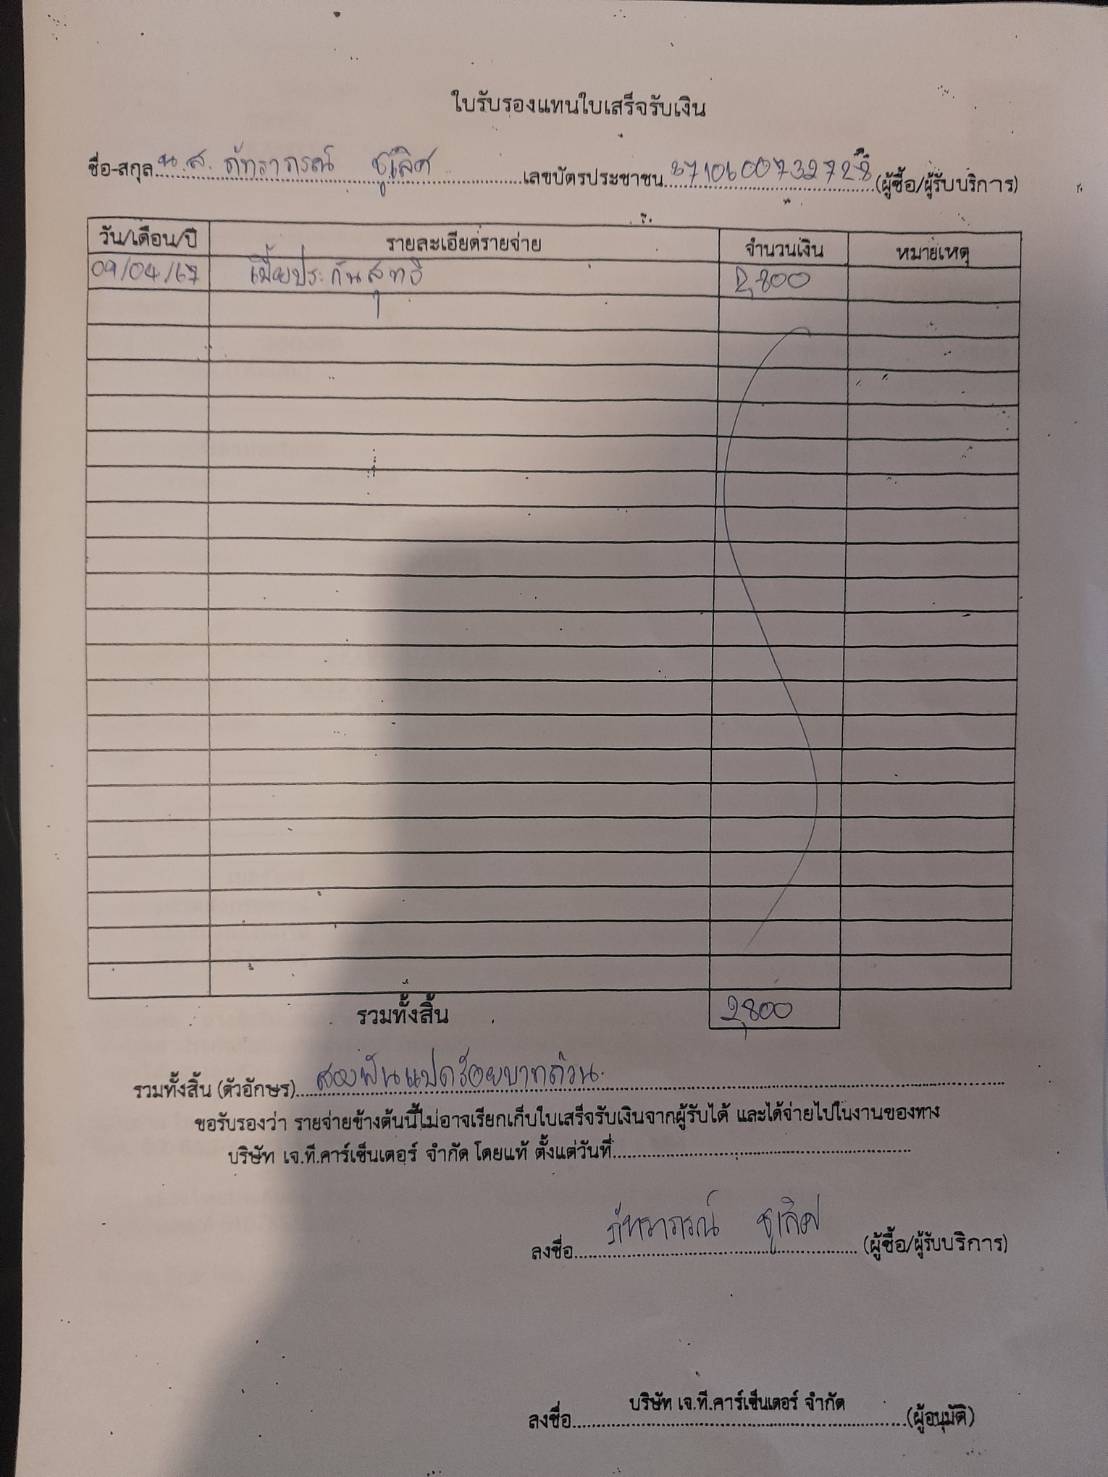 ใบรับรองแทนใบเสร็จรับเงิน
ชื่อ-สกุล น.ส. ภัทราภรณ์ ชูเลิศ เลขบัตรประชาชน (ผู้ซื้อ/ผู้รับบริการ)
วัน/เดือน/ปี รายละเอียดรายจ่าย จำนวนเงิน หมายเหตุ
09/04/67 เบี้ยประกันสุทธิ 2,800
รวมทั้งสิ้น 2,800
รวมทั้งสิ้น (ตัวอักษร) สองพันแปดร้อยบาทถ้วน.
ขอรับรองว่า รายจ่ายข้างต้นนี้ไม่อาจเรียกเก็บใบเสร็จรับเงินจากผู้รับได้ และได้จ่ายไปในงานของทาง
บริษัท เจ.ที.คาร์เซ็นเตอร์ จำกัด โดยแท้ ตั้งแต่วันที่
ลงชื่อ ภัทราภรณ์ ชูเลิศ (ผู้ซื้อ/ผู้รับบริการ)
บริษัท เจ.ที.คาร์เซ็นเตอร์ จำกัด
ลงชื่อ (ผู้อนุมัติ)